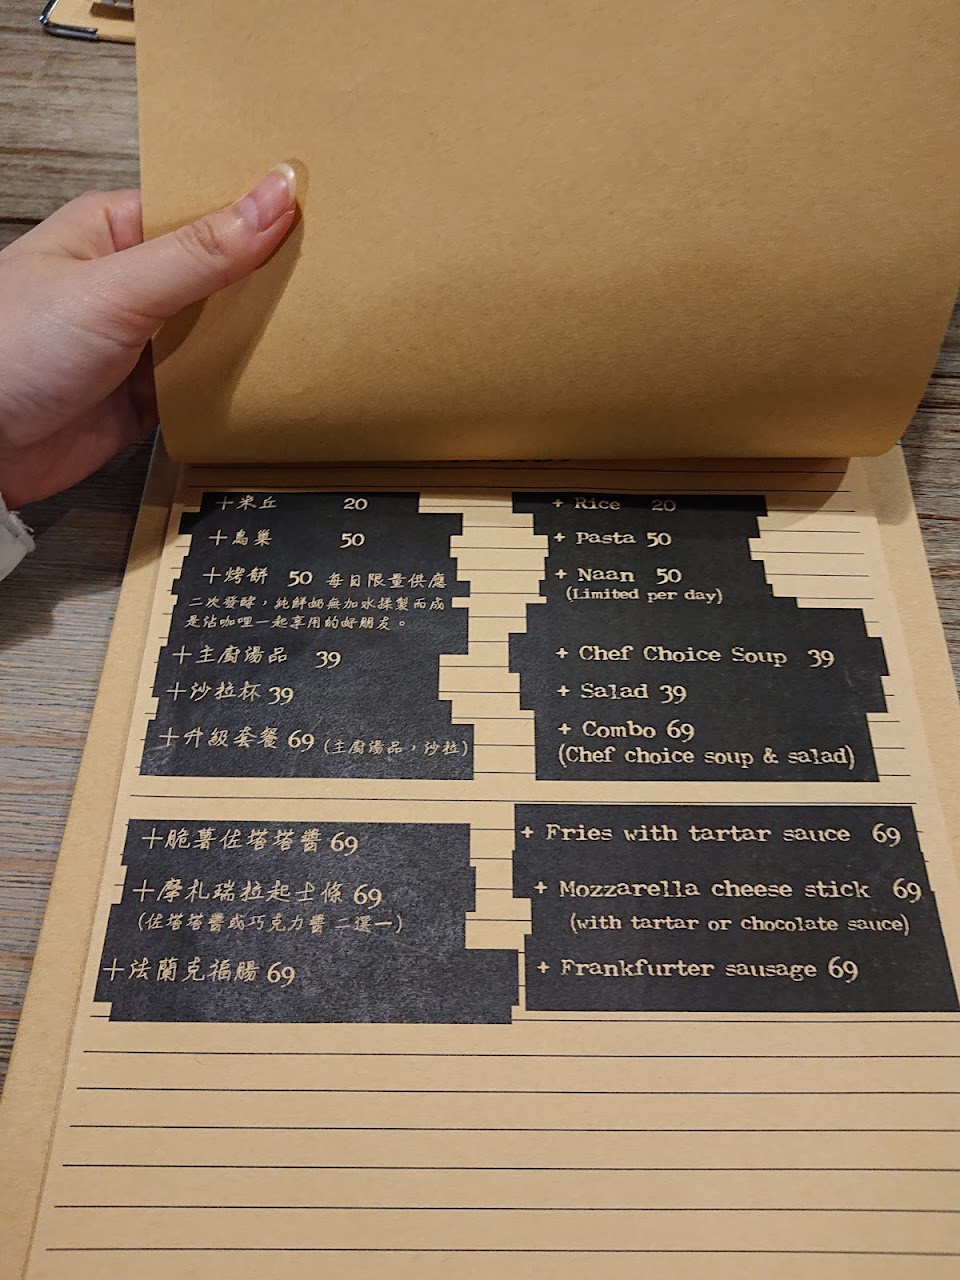 +米丘 20
+鳥巢 50
+烤餅 50 每日限量供應
二次發酵，純鮮奶無加水揉製而成
是沾咖哩一起享用的好朋友。
+主廚湯品 39
+沙拉杯 39
+升級套餐 69 (主廚湯品，沙拉)
+ Rice 20
+ Pasta 50
+ Naan 50
(Limited per day)
+ Chef Choice Soup 39
+ Salad 39
+ Combo 69
(Chef choice soup & salad)
+脆薯佐塔塔醬 69
+摩札瑞拉起士條 69
(佐塔塔醬或巧克力醬 二選一)
+法蘭克福腸 69
+ Fries with tartar sauce 69
+ Mozzarella cheese stick 69
(with tartar or chocolate sauce)
+ Frankfurter sausage 69